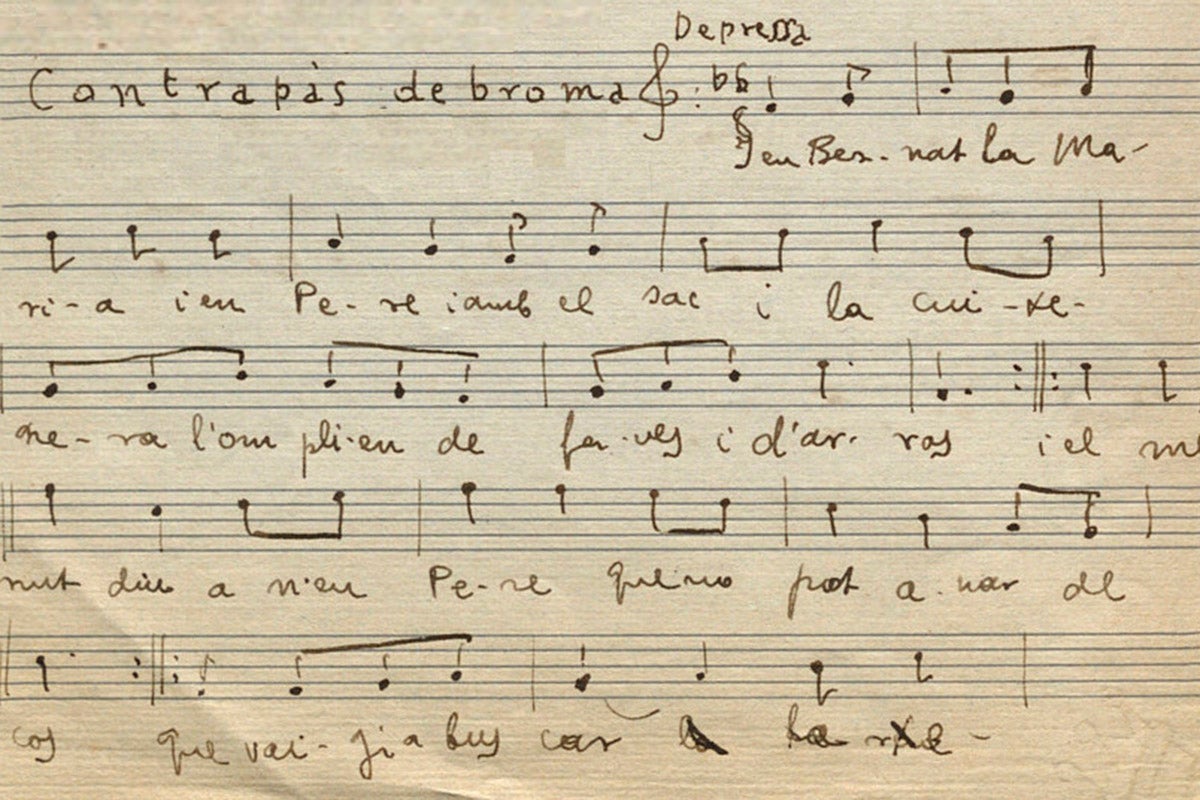 Depressa
Contrapàs de broma
Jen Ber-nat la Ma-
ri-a i en Pe-re i amb el sac i la cui-xe-
ne-ra l'om pli-en de fa-ves i d'ar-ros i el me
nut diu a n'en Pe-re que no pot a-nar de
cos que vai-gi a bus car